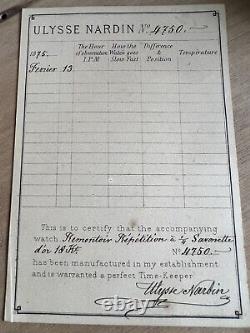 ULYSSE NARDIN No. 4750.
The Hour of observation 1 P.M How the Watch goes Slow Fast Difference & Position Temperature
1875.
Fevrier 13.
This is to certify that the accompanying
watch Remontoir Répétition à ¼ Savonette
d'or 18 Kt. No. 4750.
has been manufactured in my establishment
and is warranted a perfect Time-Keeper
Ulysse Nardin